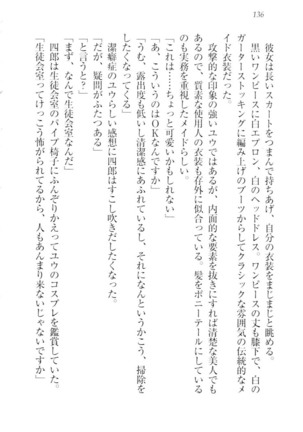 136
彼女は長いスカートをつまんで持ちあげ、自分の衣装をまじまじと眺める。
黒いワンピースに白エプロン、白のヘッドドレス。ワンピースの丈も膝下で、白の
ガーターストッキングに編み上げのブーツからしてクラシックな雰囲気の伝統的なメ
イド衣装だった。
攻撃的な印象の強いユウではあるが、内面はともかくすれば清楚な美人でも
あるので、質素な使用人の衣装も存外に似合っている。髪をポニーテールにしている
のも実務を重視したメイドらしい。
「これは……ちょっと可愛いかもしれない」
「あ、こういうのはOKなんですか」
「うむ、露出度も低いし清潔感にあふれているし、それになんというかこう、掃除を
したくなってくる」
潔癖症のユウらしい感想に四郎はすこし吹きだしたくなった。
「だが、疑問がふたつある」
「と言うと？」
「まず、なんで生徒会室なんだ」
四郎は生徒会室のパイプ椅子にふんぞりかえってユウのコスプレを鑑賞していた。
「生徒会室ってけっこう怖がられてるから、人もあんまり来ないじゃない
ですか」